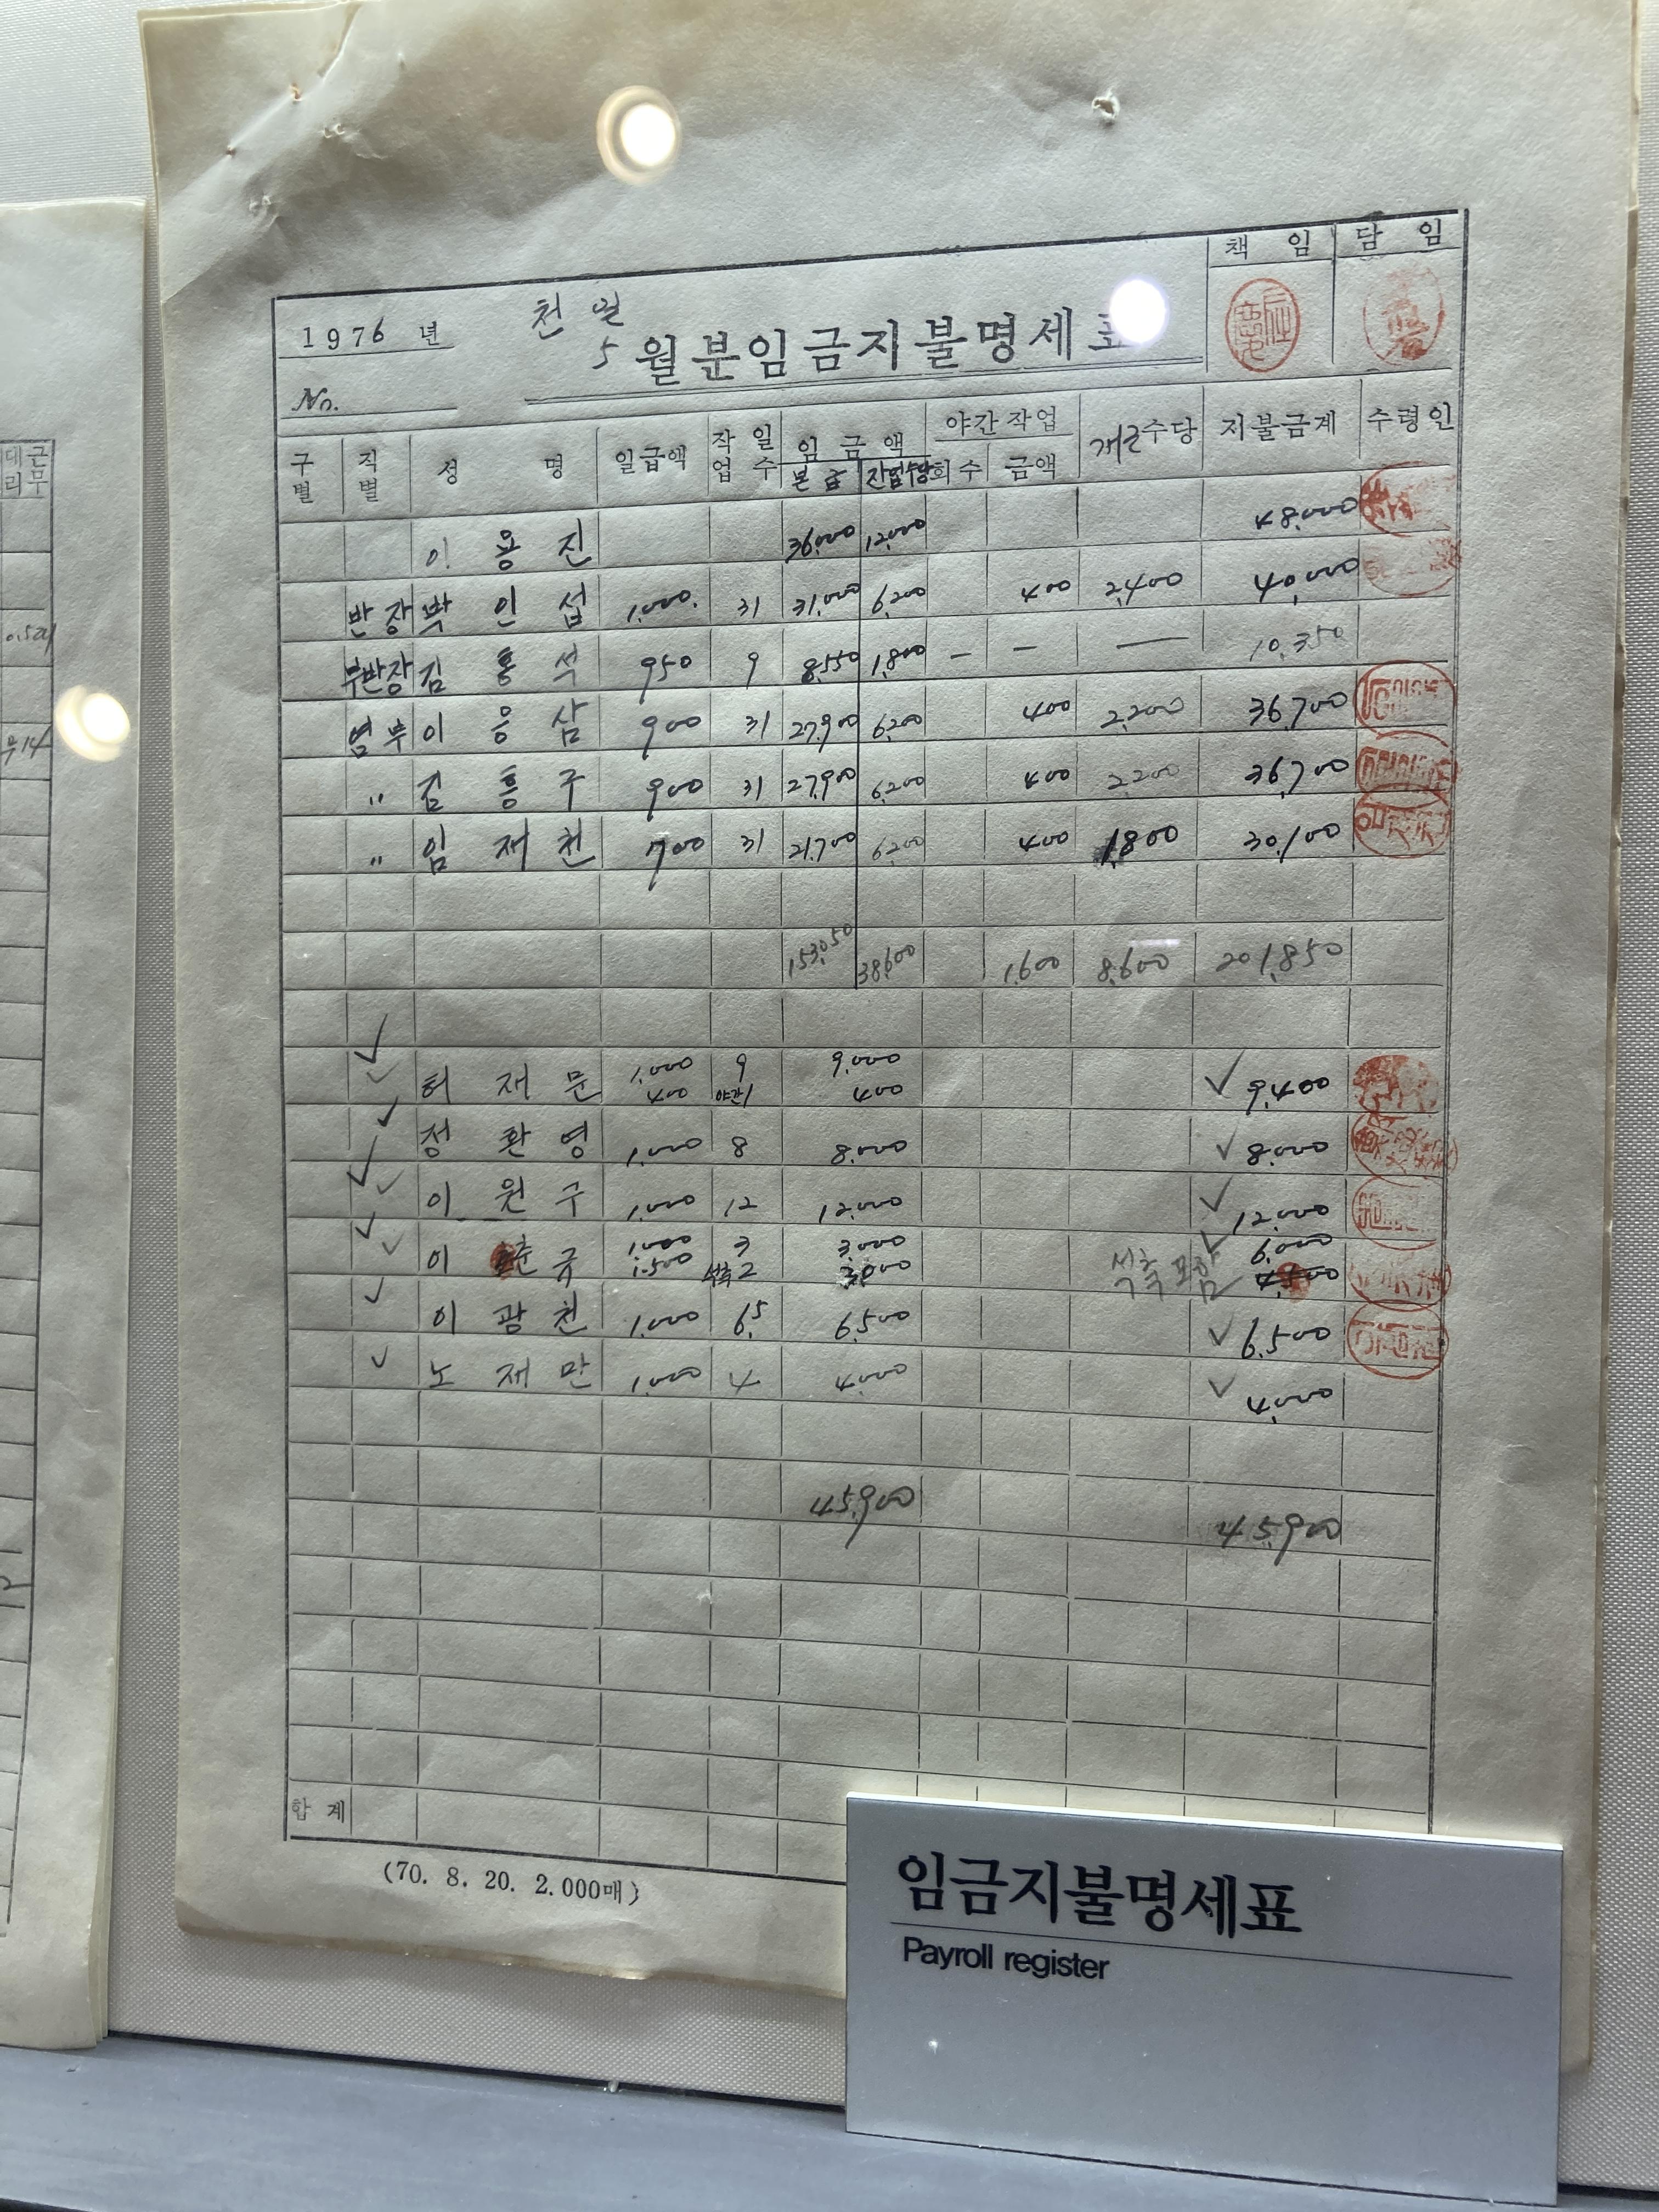 책 임 담 임
1976 년 천 일
5 월분임금지불명세표
No.
구별 직별 성 명 일급액 작업 일수 임 금 액 야간작업 개근수당 지불금계 수령인
본 급 잔업수당 회수 금액
이 용 진 36,000 12,000 48,000
반장 박 인 섭 1,000. 31 31,000 6,200 400 2,400 40,000
부반장 김 홍 석 950 9 8,550 1,800 — — — 10,350
염부 이 응 삼 900 31 27,900 6,200 400 2,200 36,700
〃 김 흥 구 900 31 27,900 6,200 400 2,200 36,700
〃 임 재 천 700 31 21,700 6,200 400 1,800 30,100
153,050 38,600 1,600 8,600 201,850
✓ ✓ 허 재 문 1,000 9 9,000 ✓ 9,400
400 야간1 400
✓ 정 환 영 1,000 8 8,000 ✓ 8,000
✓ ✓ 이 원 구 1,000 12 12,000 ✓ 12,000
✓ ✓ 이 춘 규 1,000 3 3,000 ✓ 6,000
1,500 석축2 3,000 석축포함 4,500
✓ 이 광 천 1,000 6.5 6,500 ✓ 6,500
✓ 노 재 만 1,000 4 4,000 ✓ 4,000
45,900 45,900
합 계
(70. 8. 20. 2.000매)
임금지불명세표
Payroll register
대리 근무
0.5
14